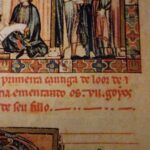 primeira cantiga de loor de s
ria ementando os .vii. goyos
de seu fillo.